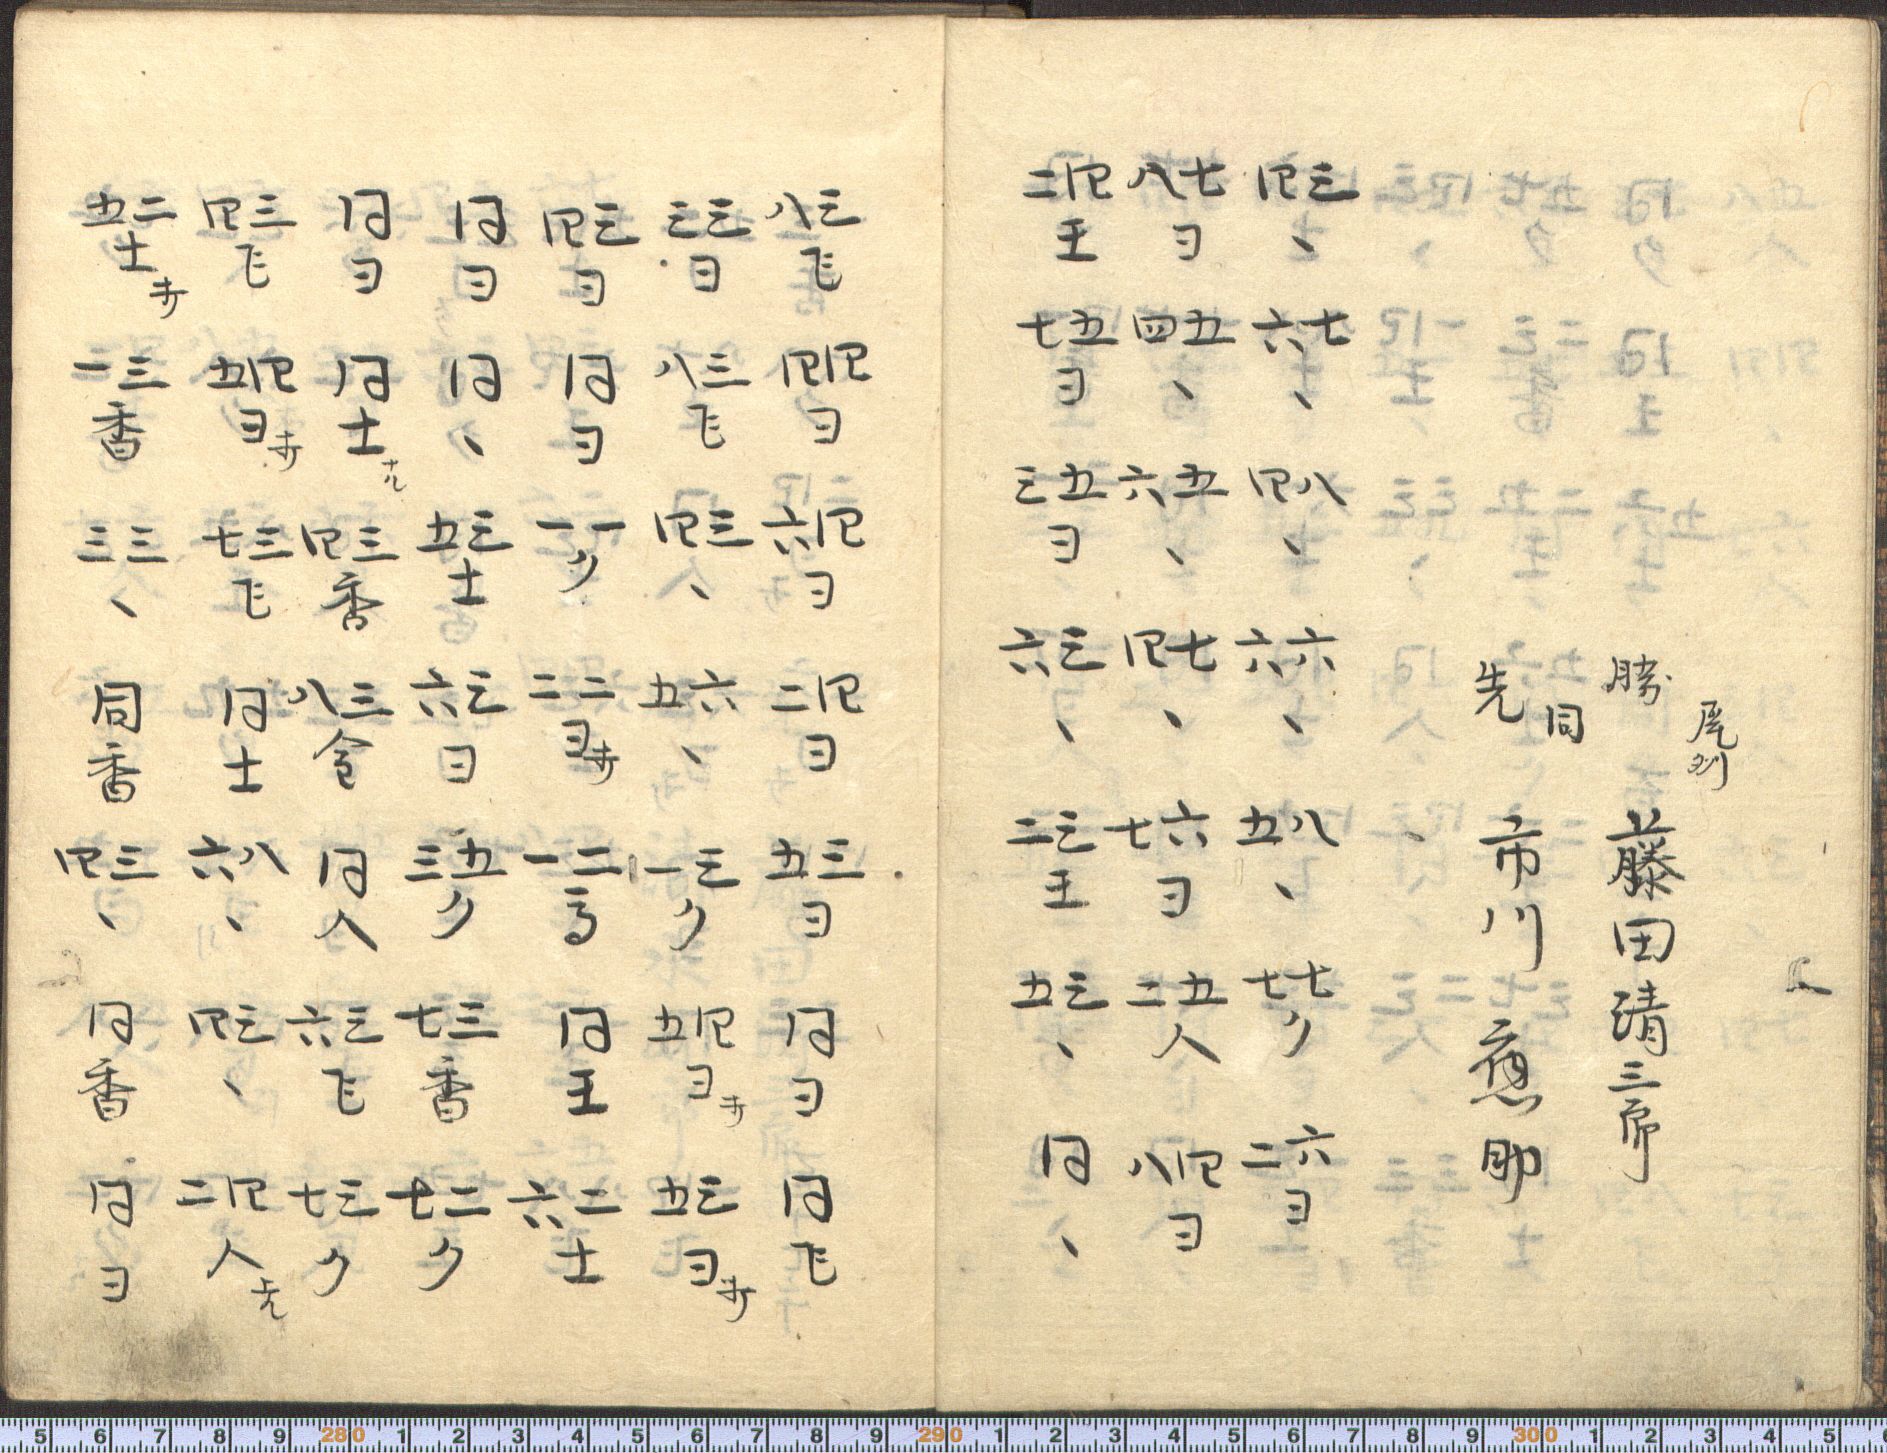 尾州
勝 藤田清三郎
同
先 市川應助
三四、 七六、 八四、 六六、 八五、 七七ク 六二ヨ
七八ヨ 五四、 五六、 七四、 六七ヨ 五二人 四八ヨ
四二王 五七ヨ 五三ヨ 三六、 三二王 三五、 同、
三八飞 四四ヨ 四六ヨ 四二ヨ 三五ヨ 同ヨ 同飞
三三ヨ 三八飞 三四、 六五、 三一ク 四五ヨ 三五ヨ
三四ヨ 同ヨ 一一ク 二二ヨ 二一 同王 二六士
同ヨ 同、 三五士 三六ヨ 五三ク 三七香 二七ク
同ヨ 同士 三四香 三八 同人 三六飞 三七ク
三四飞 四五ヨ 三七飞 同士 八六、 三四、 四二人
二五士 三一香 三三、 同香 三四、 同香 同ヨ